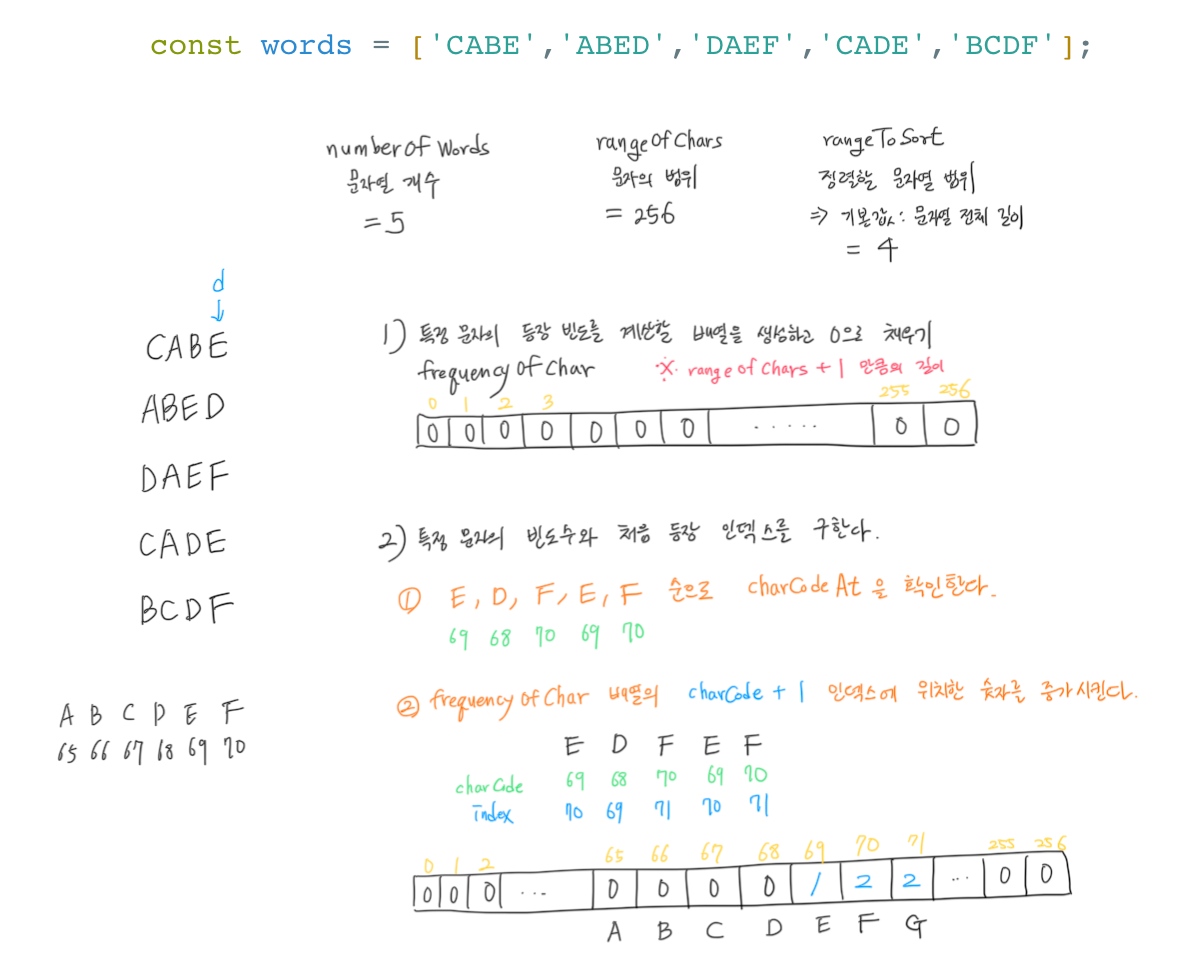 const words = ['CABE','ABED','DAEF','CADE','BCDF'];
numberOf Words
문자열 개수
= 5
rangeOfChars
문자의 범위
= 256
rangeToSort
정렬할 문자열 범위
=> 기본값 : 문자열 전체 길이
= 4
d
↓
CABE
ABED
DAEF
CADE
BCDF
A B C D E F
65 66 67 68 69 70
1) 특정 문자의 등장 빈도를 계산할 배열을 생성하고 0으로 채우기
frequency Of Char ※ range of Chars + 1 만큼의 길이
0 1 2 3 255 256
0 0 0 0 0 0 0 ..... 0 0
2) 특정 문자의 빈도수와 처음 등장 인덱스를 구한다.
① E, D, F, E, F 순으로 charCodeAt 을 확인한다.
69 68 70 69 70
② frequency Of Char 배열의 charCode + 1 인덱스에 위치한 숫자를 증가시킨다.
E D F E F
charCode 69 68 70 69 70
index 70 69 71 70 71
0 1 2 65 66 67 68 69 70 71 255 256
0 0 0 ... 0 0 0 0 1 2 2 ... 0 0
A B C D E F G